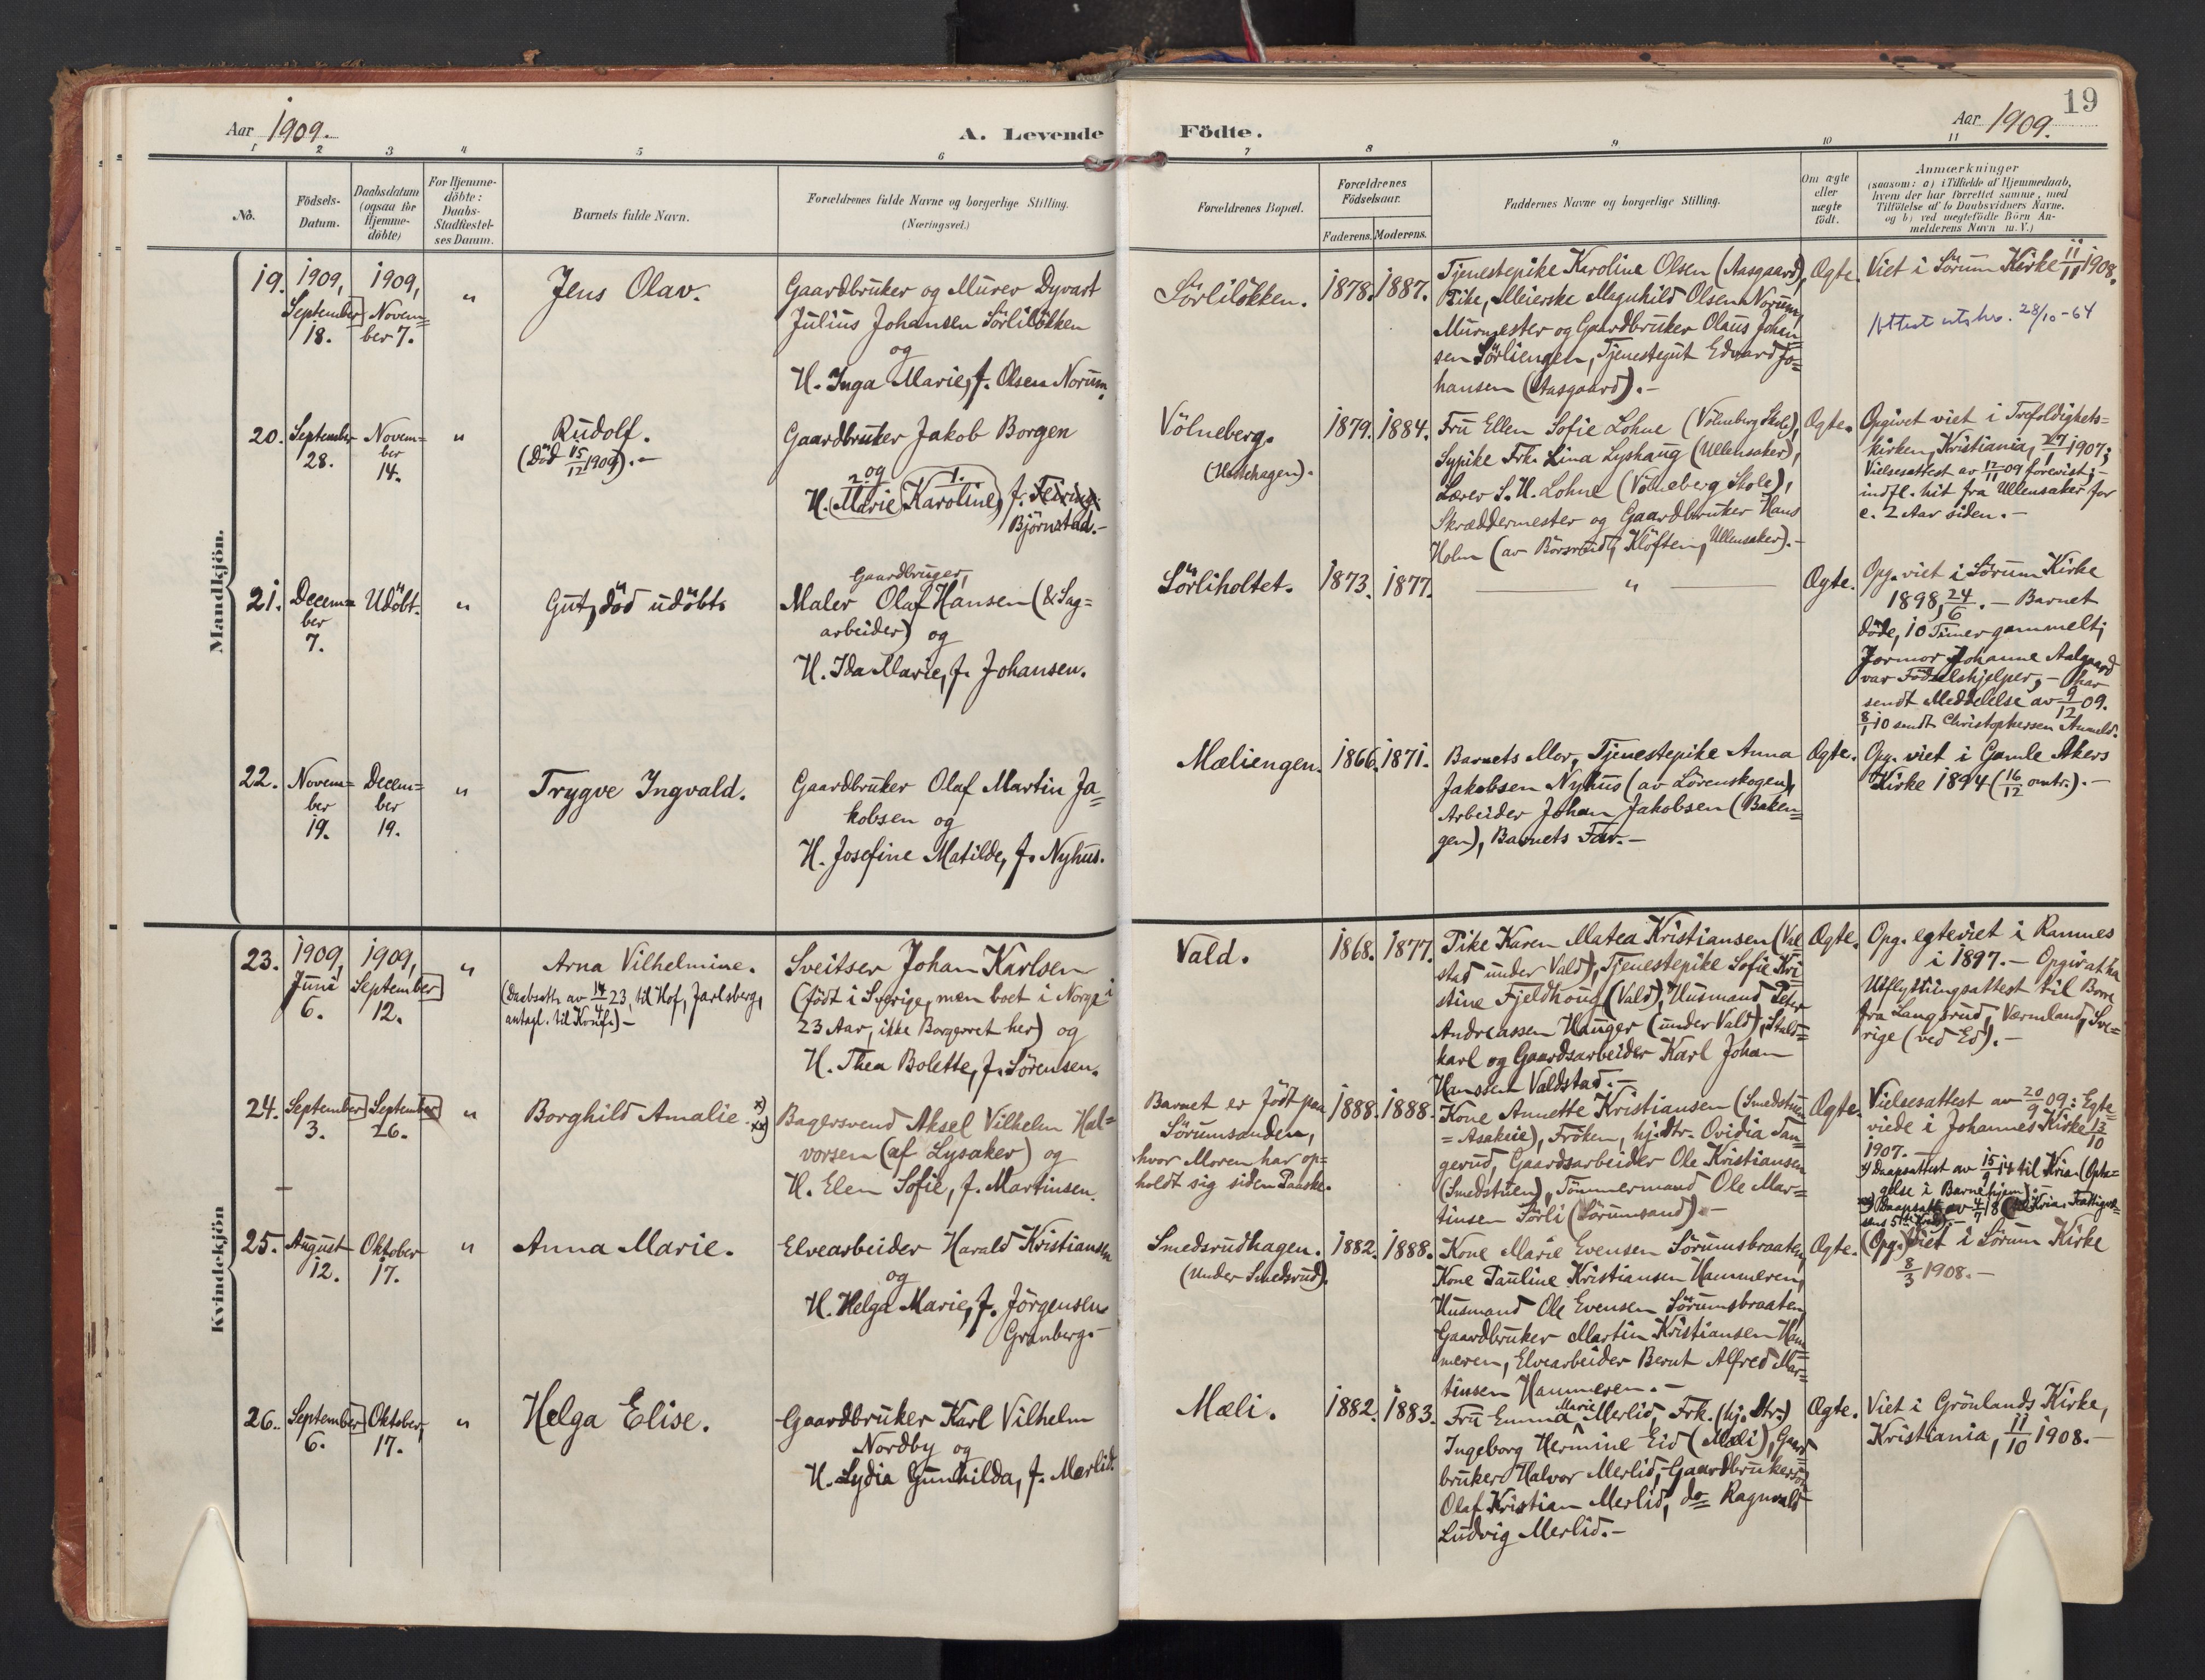 19
Aar 1909.
A. Levende Födte.
Aar 1909.
1 2 3 4 5 6 7 8 9 10 11
No.
Födsels-
Datum.
Daabsdatum
(ogsaa for
Hjemme-
döbte)
For Hjemme-
döbte:
Daabs-
Stadfæstel-
ses Datum.
Barnets fulde Navn.
Forældrenes fulde Navne og borgerlige Stilling.
(Næringsvei.)
Forældrenes Bopæl.
Forældrenes
Födselsaar.
Faderens.
Moderens.
Faddernes Navne og borgerlige Stilling.
Om ægte
eller
uægte
födt.
Anmærkninger
(saasom: a) i Tilfælde af Hjemmedaab,
hvem der har forrettet samme, med
Tilföielse af to Daabsvidners Navne.
og b) ved uægtefödte Börn An-
melderens Navn m.V.)
Mandkjön.
19.
1909,
September
18.
1909,
Novem=
ber 7.
"
Jens Olav.
Gaardbruker og Murer Dyvart
Julius Johansen Sörlilökken
og
H. Inga Marie, f. Olsen Norum.
Sörlilökken.
1878.
1887.
Tjenestepike Karoline Olsen (Aasgaard),
Pike, Meierske Magnhild Olsen Norum,
Murmester og Gaardbruker Olaus Johan=
sen Sörliengen, Tjenestegut Edvard Jo=
hansen (Aasgaard).-
Ægte.
Viet i Sörum Kirke 11/11 1908.
Attest utskr. 28/10-64
20.
September
28.
Novem=
ber
14.
"
Rudolf.
(Död 15/12 1909).-
Gaardbruker Jakob Borgen
og
2. 1.
H. Marie Karoline, f. Feiring.
Björnstad.-
Völneberg.
(Hestehagen).
1879.
1884.
Fru Ellen Sofie Lohne (Völneberg Skole),
Sypike Frk. Lina Lyshaug (Ullensaker),
Lærer S. H. Lohne (Völneberg Skole),
Skræddermester og Gaardbruker Hans
Holm (av Börsrud, Klöften, Ullensaker).-
Ægte.
Opgivet viet i Trefoldighets=
kirken, Kristiania, 27/1 1907;
Vielsesattest av 12/11 09 forevist;-
indfl. hit fra Ullensaker for
c. 2 Aar siden.-
21.
Decem=
ber
7.
Udöbt.
"
Gut, död udöbt.
Gaardbruger,
Maler Olaf Hansen (& Sag=
arbeider) og
H. Ida Marie, f. Johansen.
Sörliholtet.
1873.
1877.
"
Ægte.
Opg. viet i Sörum Kirke
1898, 24/6.- Barnet
döde, 10 Timer gammelt;
Farmor Johanne Aalgaard
var Födselshjelper,- har
sendt Meddelelse av 9/12 09.
8/1 10 sendt Christophersen Anmeld.
22.
Novem=
ber
19.
Decem=
ber
19.
"
Trygve Ingvald.
Gaardbruker Olaf Martin Ja=
kobsen og
H. Josefine Matilde, f. Nyhus.
Mæliengen.
1866.
1871.
Barnets Mor, Tjenestepike Anna
Jakobsen Nyhus (av Lörenskogen),
Arbeider Johan Jakobsen (Baken=
gen), Barnets Far.-
Ægte.
Opg. viet i Gamle Akers
Kirke 1894 (16/12 omtr.).-
Kvindekjön
23.
1909,
Juni
6.
1909,
September
12.
"
Arna Vilhelmine.
(Daabsatt. av 14/4 23, til Hof, Jarlsberg,
antagl. til Konf.)-
Sveitser Johan Karlsen
(födt i Sverige, men boet i Norge i
23 Aar, ikke Borgerret her) og
H. Thea Bolette, f. Sörensen.
Vald.
1868.
1877.
Pike Karen Matea Kristiansen (Val
stad under Vald), Tjenestepike Sofie Kri
stine Fjeldhoug (Vald), Husmand Peter
Andreassen Hauger (under Vald), Stald=
karl og Gaardsarbeider Karl Johan
Hanssen Valdstad.-
Ægte.
Opg. egteviet i Ramnes
i 1897.- Opgir at ha
Utflyttningsattest til Borre
fra Langbrud, Værmland, Sve=
rige (ved Ed).-
24.
September
3.
September
26.
"
Borghild Amalie. x) xx)
Bagersvend Aksel Vilhelm Hal=
vorsen (af Lysaker) og
H. Elen Sofie, f. Martinsen.
Barnet er födt paa
Sörumsanden,
hvor Moren har op=
holdt sig siden Paaske.
1888.
1888.
Kone Annette Kristiansen (Smedstuen
=Asakeie), Fröken, hj. Dtr. Ovidia Tan=
gerud, Gaardsarbeider Ole Kristiansen
(Smedstuen), Tömmermand Ole Mar=
tinsen Sörli (Sörumsand).-
Ægte.
Vielsesattest av 20/9 09: Egte=
viede i Johannes Kirke 13/10
1907.-
x) Daapsattest av 15/9 14 til Kria (Opta=
gelse i Barnehjem).-
xx) Daapsatt. av 4/7 18 (til Kria. Fattigvæ=
25.
August
12.
Oktober
17.
"
Anna Marie.
Elvearbeider Harald Kristiansen
og
H. Helga Marie, f. Jörgensen
Granberg.-
Smedsrudhagen.
(Under Smedsrud).
1882.
1888.
Kone Marie Evensen Sörumsbraaten,
Kone Pauline Kristiansen Hammeren,
Husmand Ole Evensen Sörumsbraaten,
Gaardbruker Martin Kristiansen Ham=
meren, Elvearbeider Bernt Alfred Mar=
tinsen Hammeren.-
Ægte.
(Opg.) Viet i Sörum Kirke
8/3 1908.-
26.
September
6.
Oktober,
17.
"
Helga Elise.
Gaardbruker Karl Vilhelm
Nordby og
H. Lydia Gunhilda, f. Merlid.
Mæli.
1882.
1883.
Fru Emma Marie Merlid, Frk. (hj. Dtr.)
Ingeborg Hermine Eid (Mæli), Gaard=
bruker Halvor Merlid, Gaardbrukersön
Olaf Kristian Merlid, do Ragnvald
Ludvig Merlid.-
Ægte.
Viet i Grönlands Kirke,
Kristiania, 11/10 1908.-